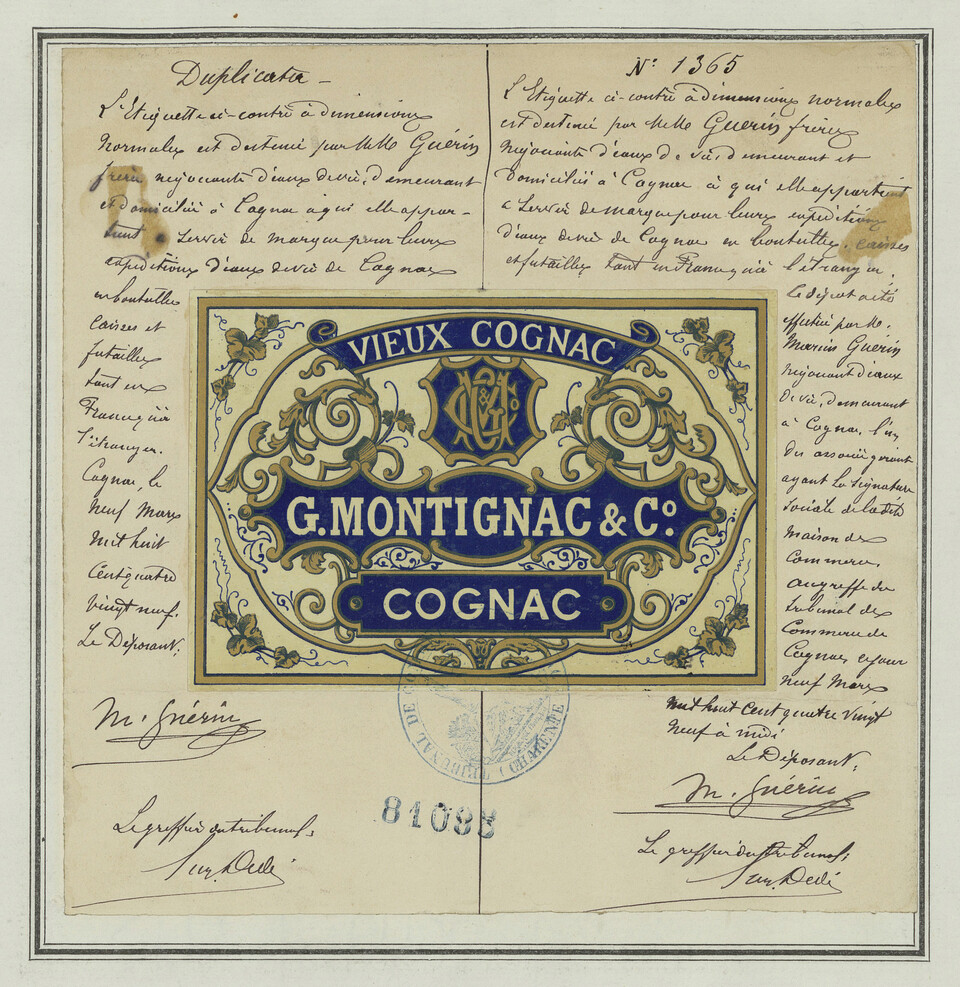 Duplicata
L'Etiquette ci-contre à dimensions
normales est destinée par M.M. Guérin
frères négociants d'eaux de vie, demeurant
et domiciliés à Cognac à qui elle appar-
tient à servir de marque pour leurs
expéditions d'eaux de vie de Cognac
en bouteilles
caisses et
futailles
tant en
France qu'à
l'étranger.
Cognac, le
neuf Mars
mil huit
cent quatre
vingt neuf.
Le Déposant:
M. Guérin
Le greffier du tribunal:
N° 1365
L'Etiquette ci-contre à dimensions normales
est destinée par M.M. Guérin frères
négociants d'eaux de vie, demeurant et
domiciliés à Cognac à qui elle appartient
à servir de marque pour leurs expéditions
d'eaux de vie de Cognac en bouteilles, caisses
et futailles tant en France qu'à l'étranger.
Le dépôt a été
effectué par M.
Guérin
négociant d'eaux
de vie, demeurant
à Cognac, l'un
des associés gérant
ayant la signature
sociale de la dite
maison de
commerce,
au greffe du
tribunal de
Commerce de
Cognac ce jour
neuf Mars
mil huit cent quatre vingt
neuf à midi
Le Déposant:
M. Guérin
Le greffier du tribunal:
VIEUX COGNAC
G. MONTIGNAC & C°.
COGNAC
TRIBUNAL DE
CHARENTE